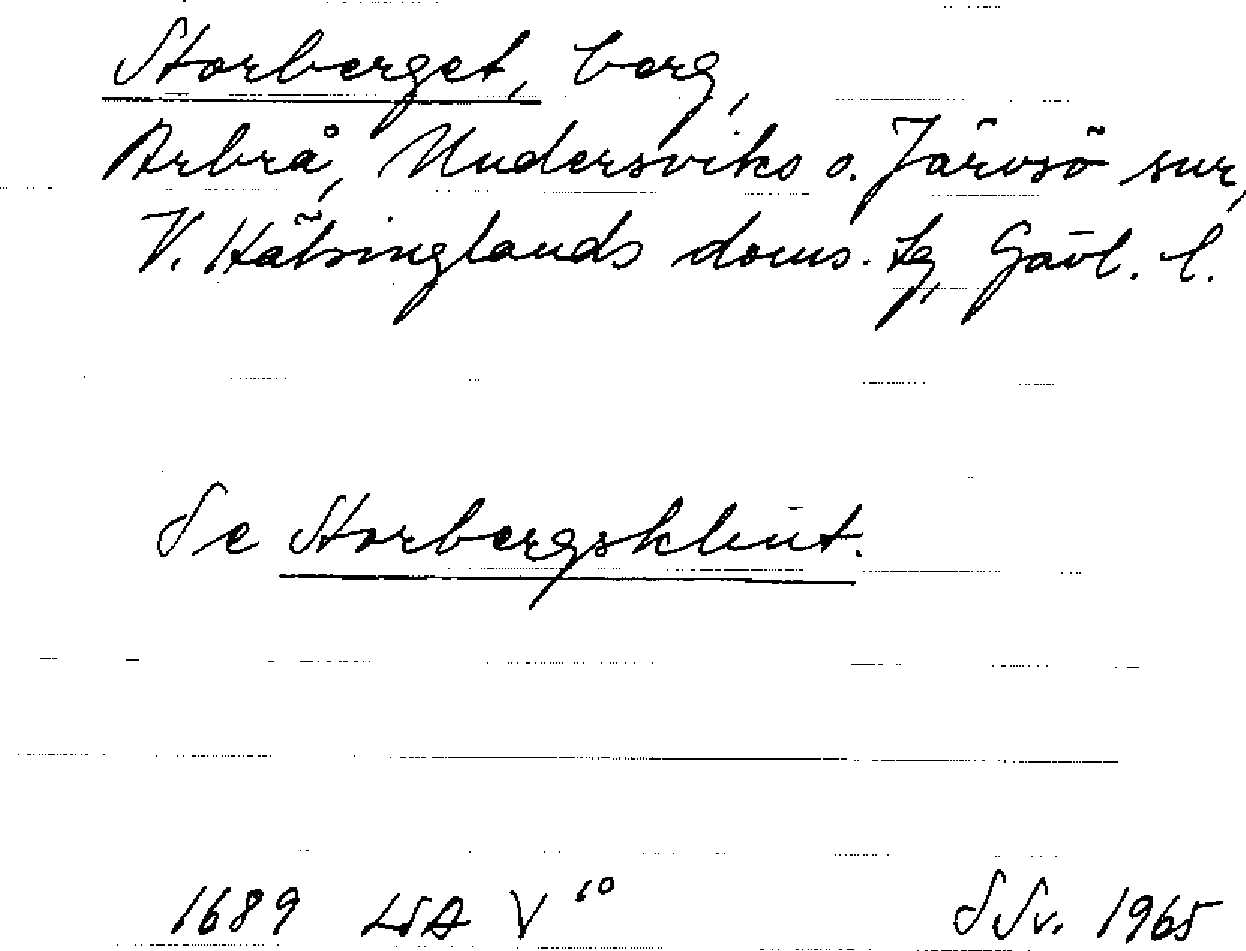 Storberget, berg,
Arbrå, Undersviks o. Järvsö snr,
V. Hälsinglands doms. tg, Gävl. l.
Se Storbergsklint.
1689 LSA V 10
SSv. 1965